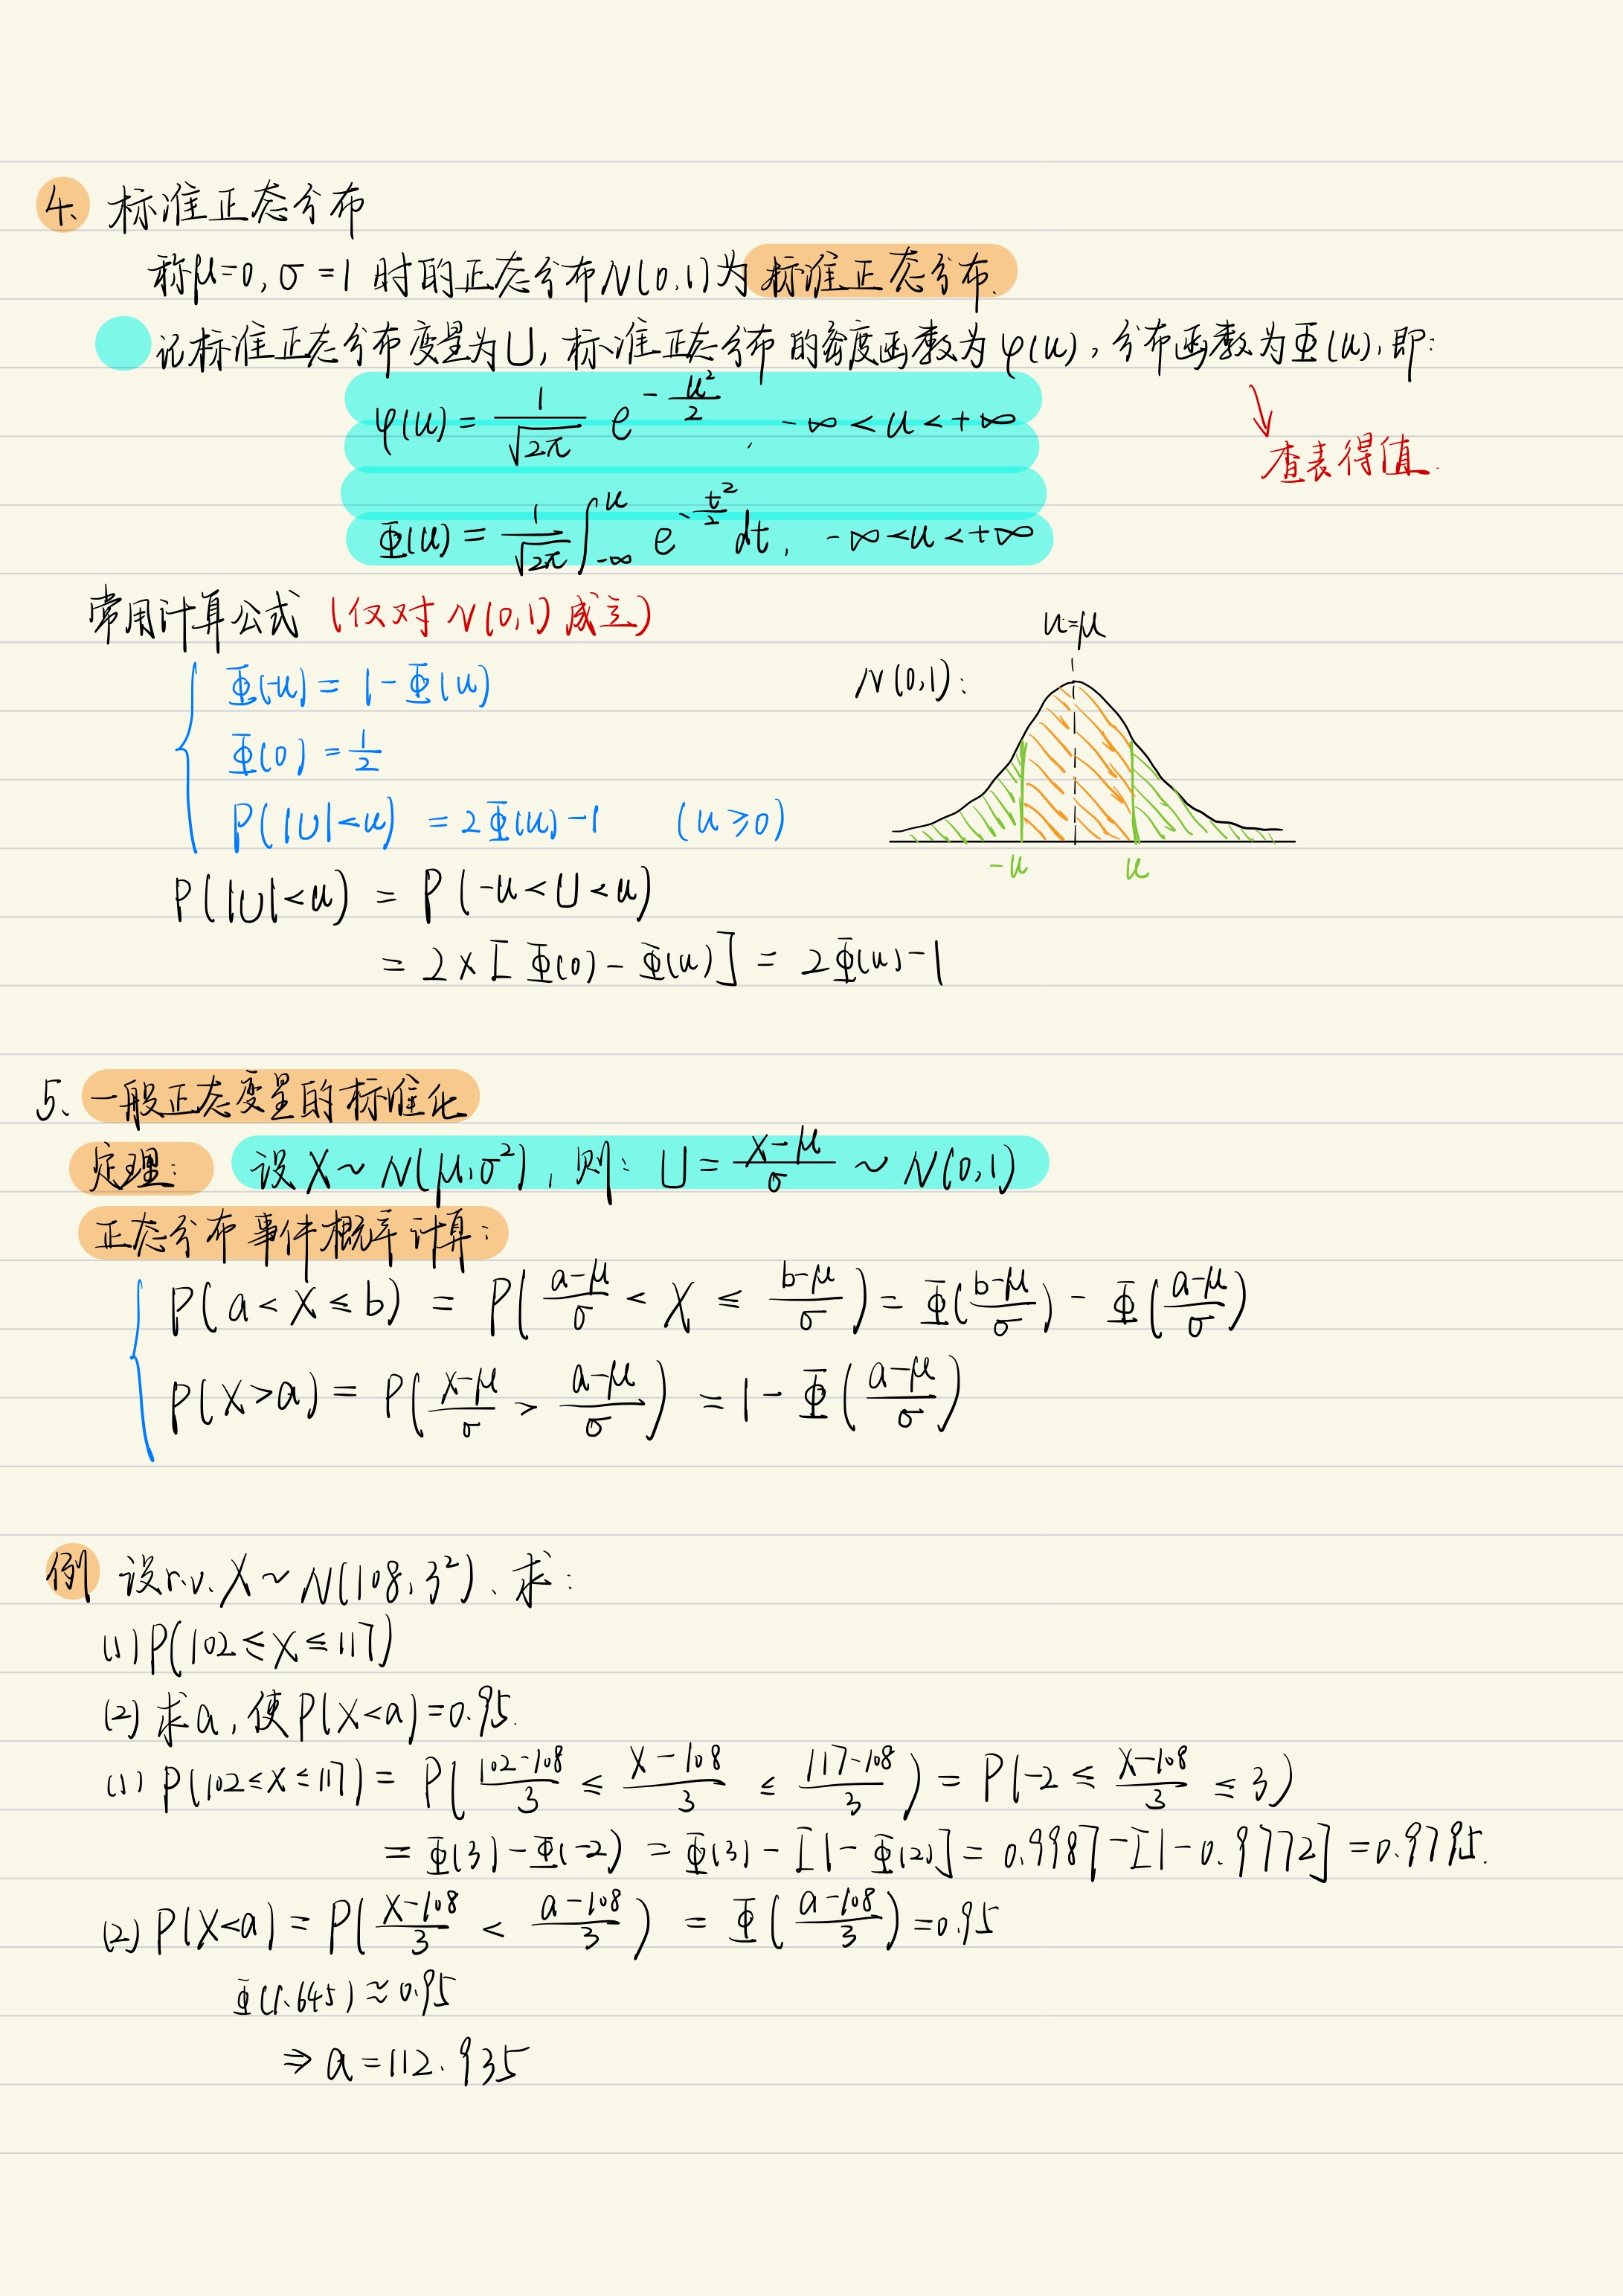 4、标准正态分布
称μ=0,σ=1 时的正态分布N(0,1)为标准正态分布.
记标准正态分布变量为U, 标准正态分布的密度函数为φ(u), 分布函数为Φ(u), 即:
φ(u) = \frac{1}{\sqrt{2π}} e^{-\frac{u^2}{2}}, -∞<u<+∞
查表得值.
Φ(u) = \frac{1}{\sqrt{2π}} ∫_{-∞}^{u} e^{-\frac{t^2}{2}} dt, -∞<u<+∞
常用计算公式 (仅对 N(0,1) 成立)
u=μ
N(0,1):
Φ(-u) = 1-Φ(u)
Φ(0) = \frac{1}{2}
P(|U|<u) = 2Φ(u)-1 (u≥0)
-u u
P(|U|<u) = P(-u<U<u)
= 2×[Φ(0)-Φ(u)] = 2Φ(u)-1
5、一般正态变量的标准化
定理: 设X~N(μ,σ²), 则: U = \frac{X-μ}{σ} ~ N(0,1)
正态分布事件概率计算:
P(a<X≤b) = P(\frac{a-μ}{σ} < X ≤ \frac{b-μ}{σ}) = Φ(\frac{b-μ}{σ}) - Φ(\frac{a-μ}{σ})
P(X>a) = P(\frac{X-μ}{σ} > \frac{a-μ}{σ}) = 1-Φ(\frac{a-μ}{σ})
例 设r.v. X~N(108, 3²)、求:
(1) P(102≤X≤117)
(2) 求a, 使P(X<a)=0.95.
(1) P(102≤X≤117) = P(\frac{102-108}{3} ≤ \frac{X-108}{3} ≤ \frac{117-108}{3}) = P(-2 ≤ \frac{X-108}{3} ≤ 3)
= Φ(3)-Φ(-2) = Φ(3)-[1-Φ(2)] = 0.9987-[1-0.9772] = 0.9795.
(2) P(X<a) = P(\frac{X-108}{3} < \frac{a-108}{3}) = Φ(\frac{a-108}{3}) = 0.95
Φ(1.645)≈0.95
⇒ a=112.935